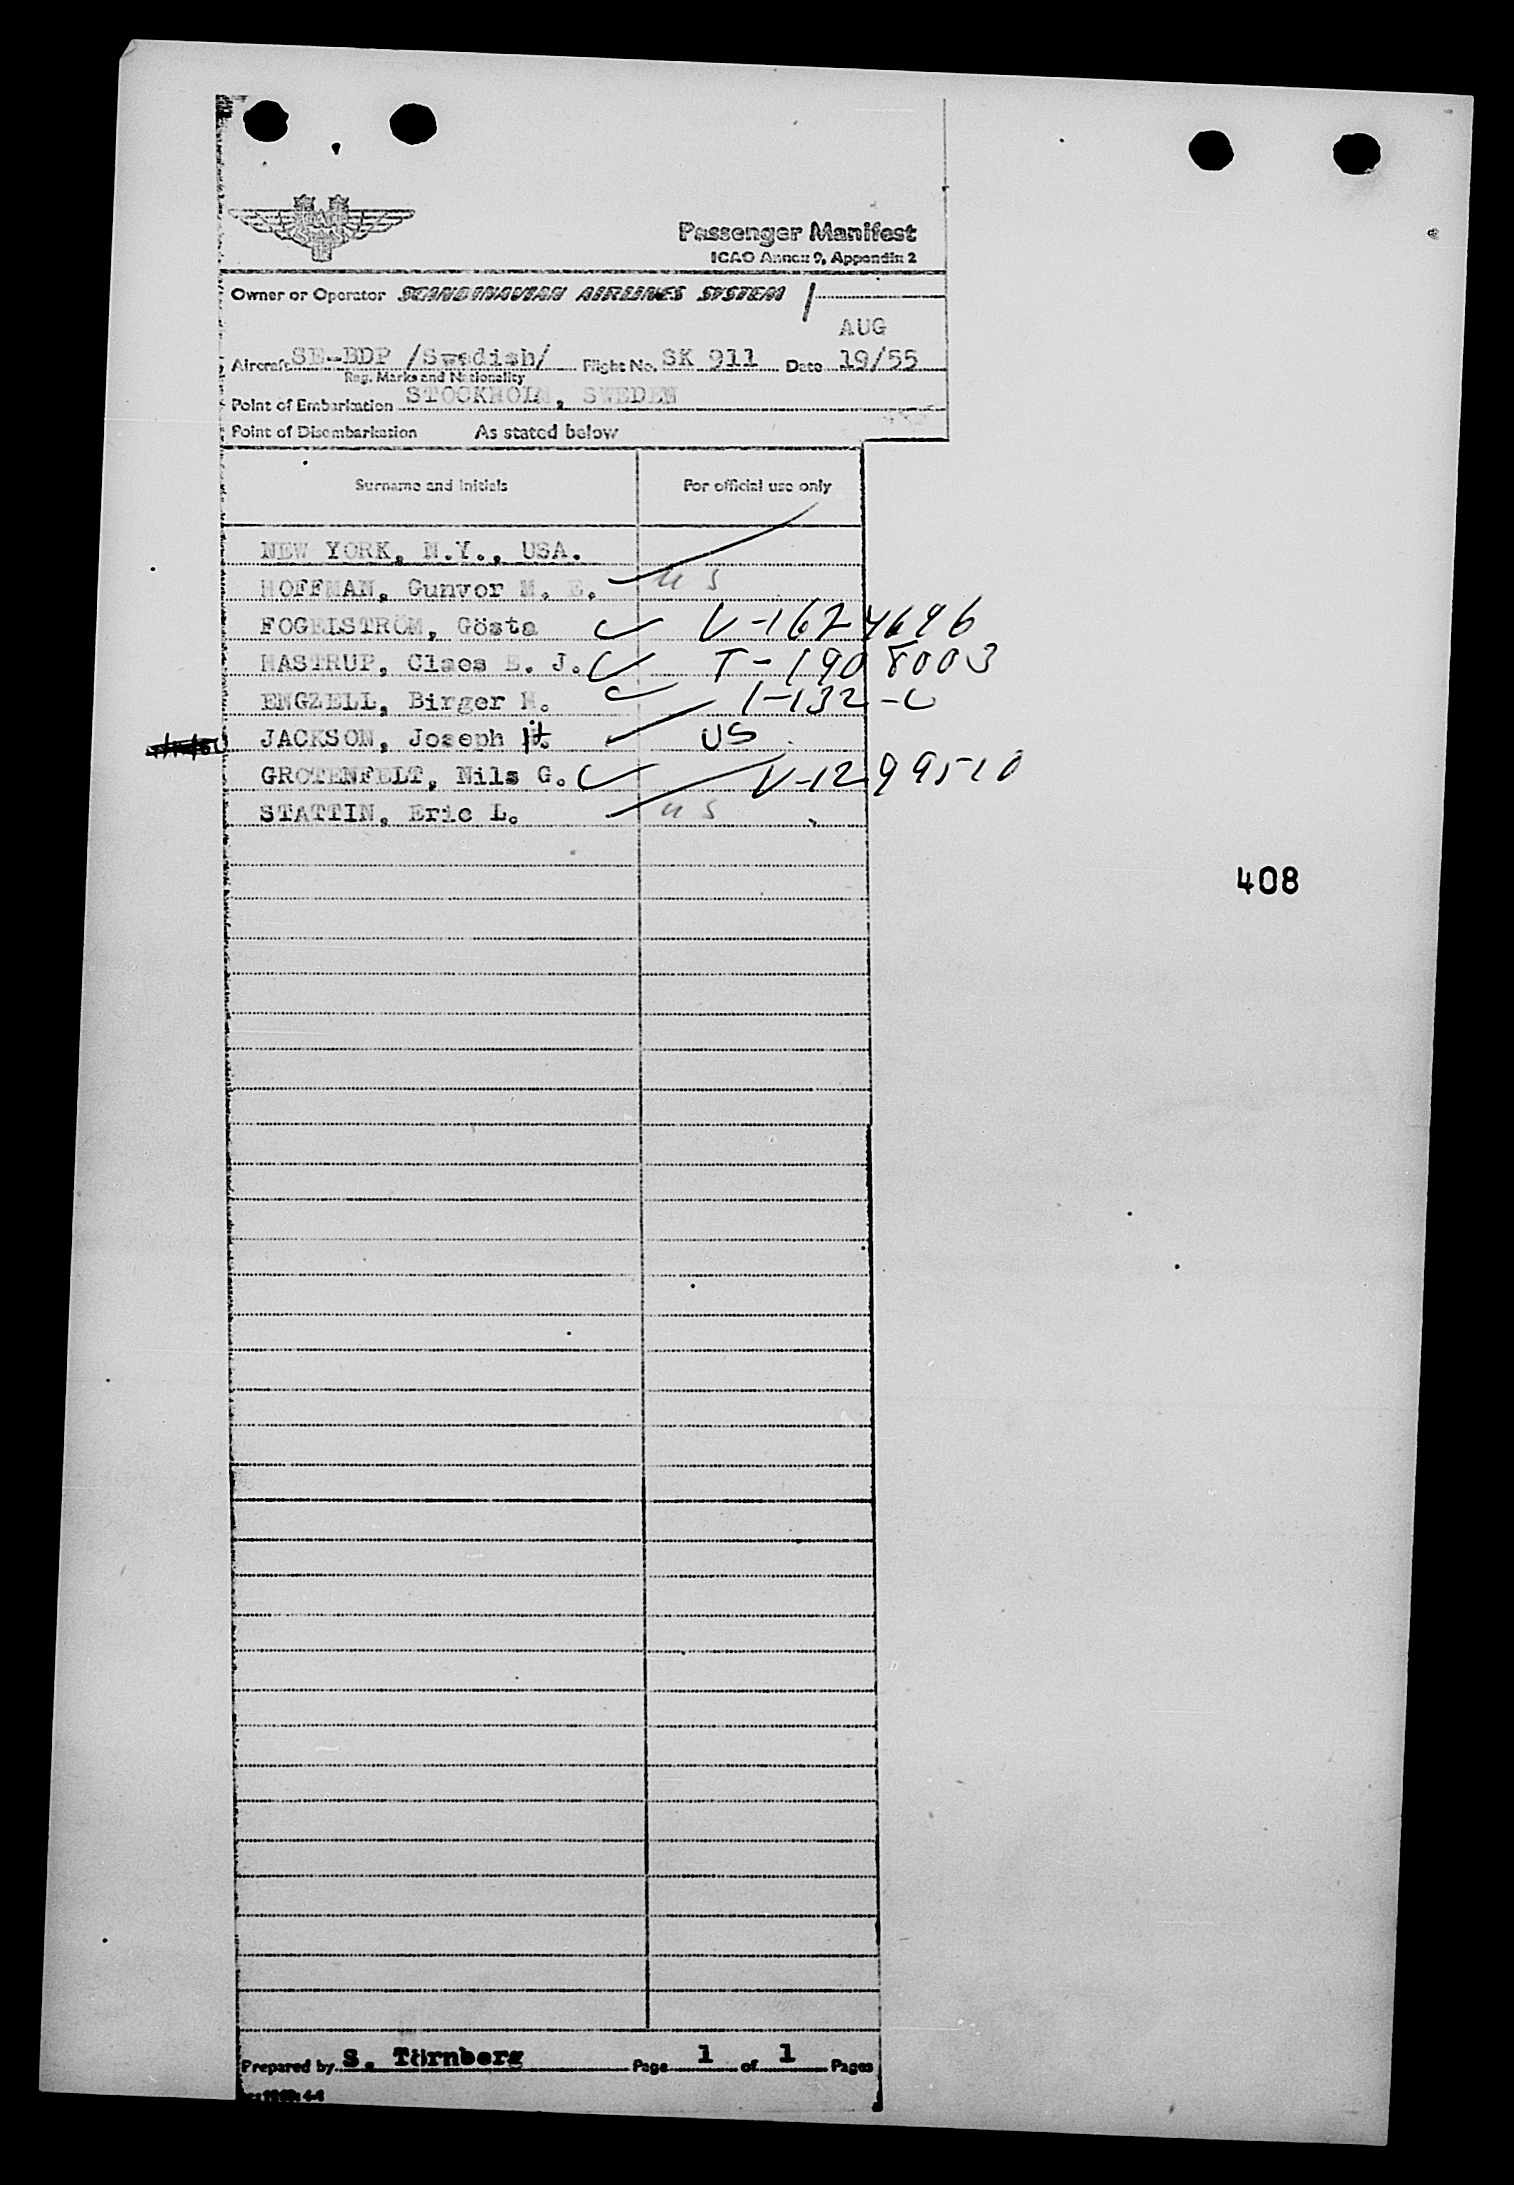 Passenger Manifest
ICAO Annex 9, Appendix 2
Owner or Operator SCANDINAVIAN AIRLINES SYSTEM
AUG
Aircraft SE-BDP /Swedish/ Flight No. SK 911 Date 19/55
Reg. Marks and Nationality
Point of Embarkation STOCKHOLM, SWEDEN
Point of Disembarkation As stated below
Surname and initials For official use only
NEW YORK, N.Y., USA.
HOFFMAN, Gunvor M. E. US
FOGELSTRÖM, Gösta V-1624696
HASTRUP, Claes E. J. T-1908003
ENGZELL, Birger H. I-132-C
JACKSON, Joseph H. US
GROTENFELT, Nils G. V-1299510
STATTIN, Eric L. US
408
Prepared by S. Törnberg Page 1 of 1 Pages